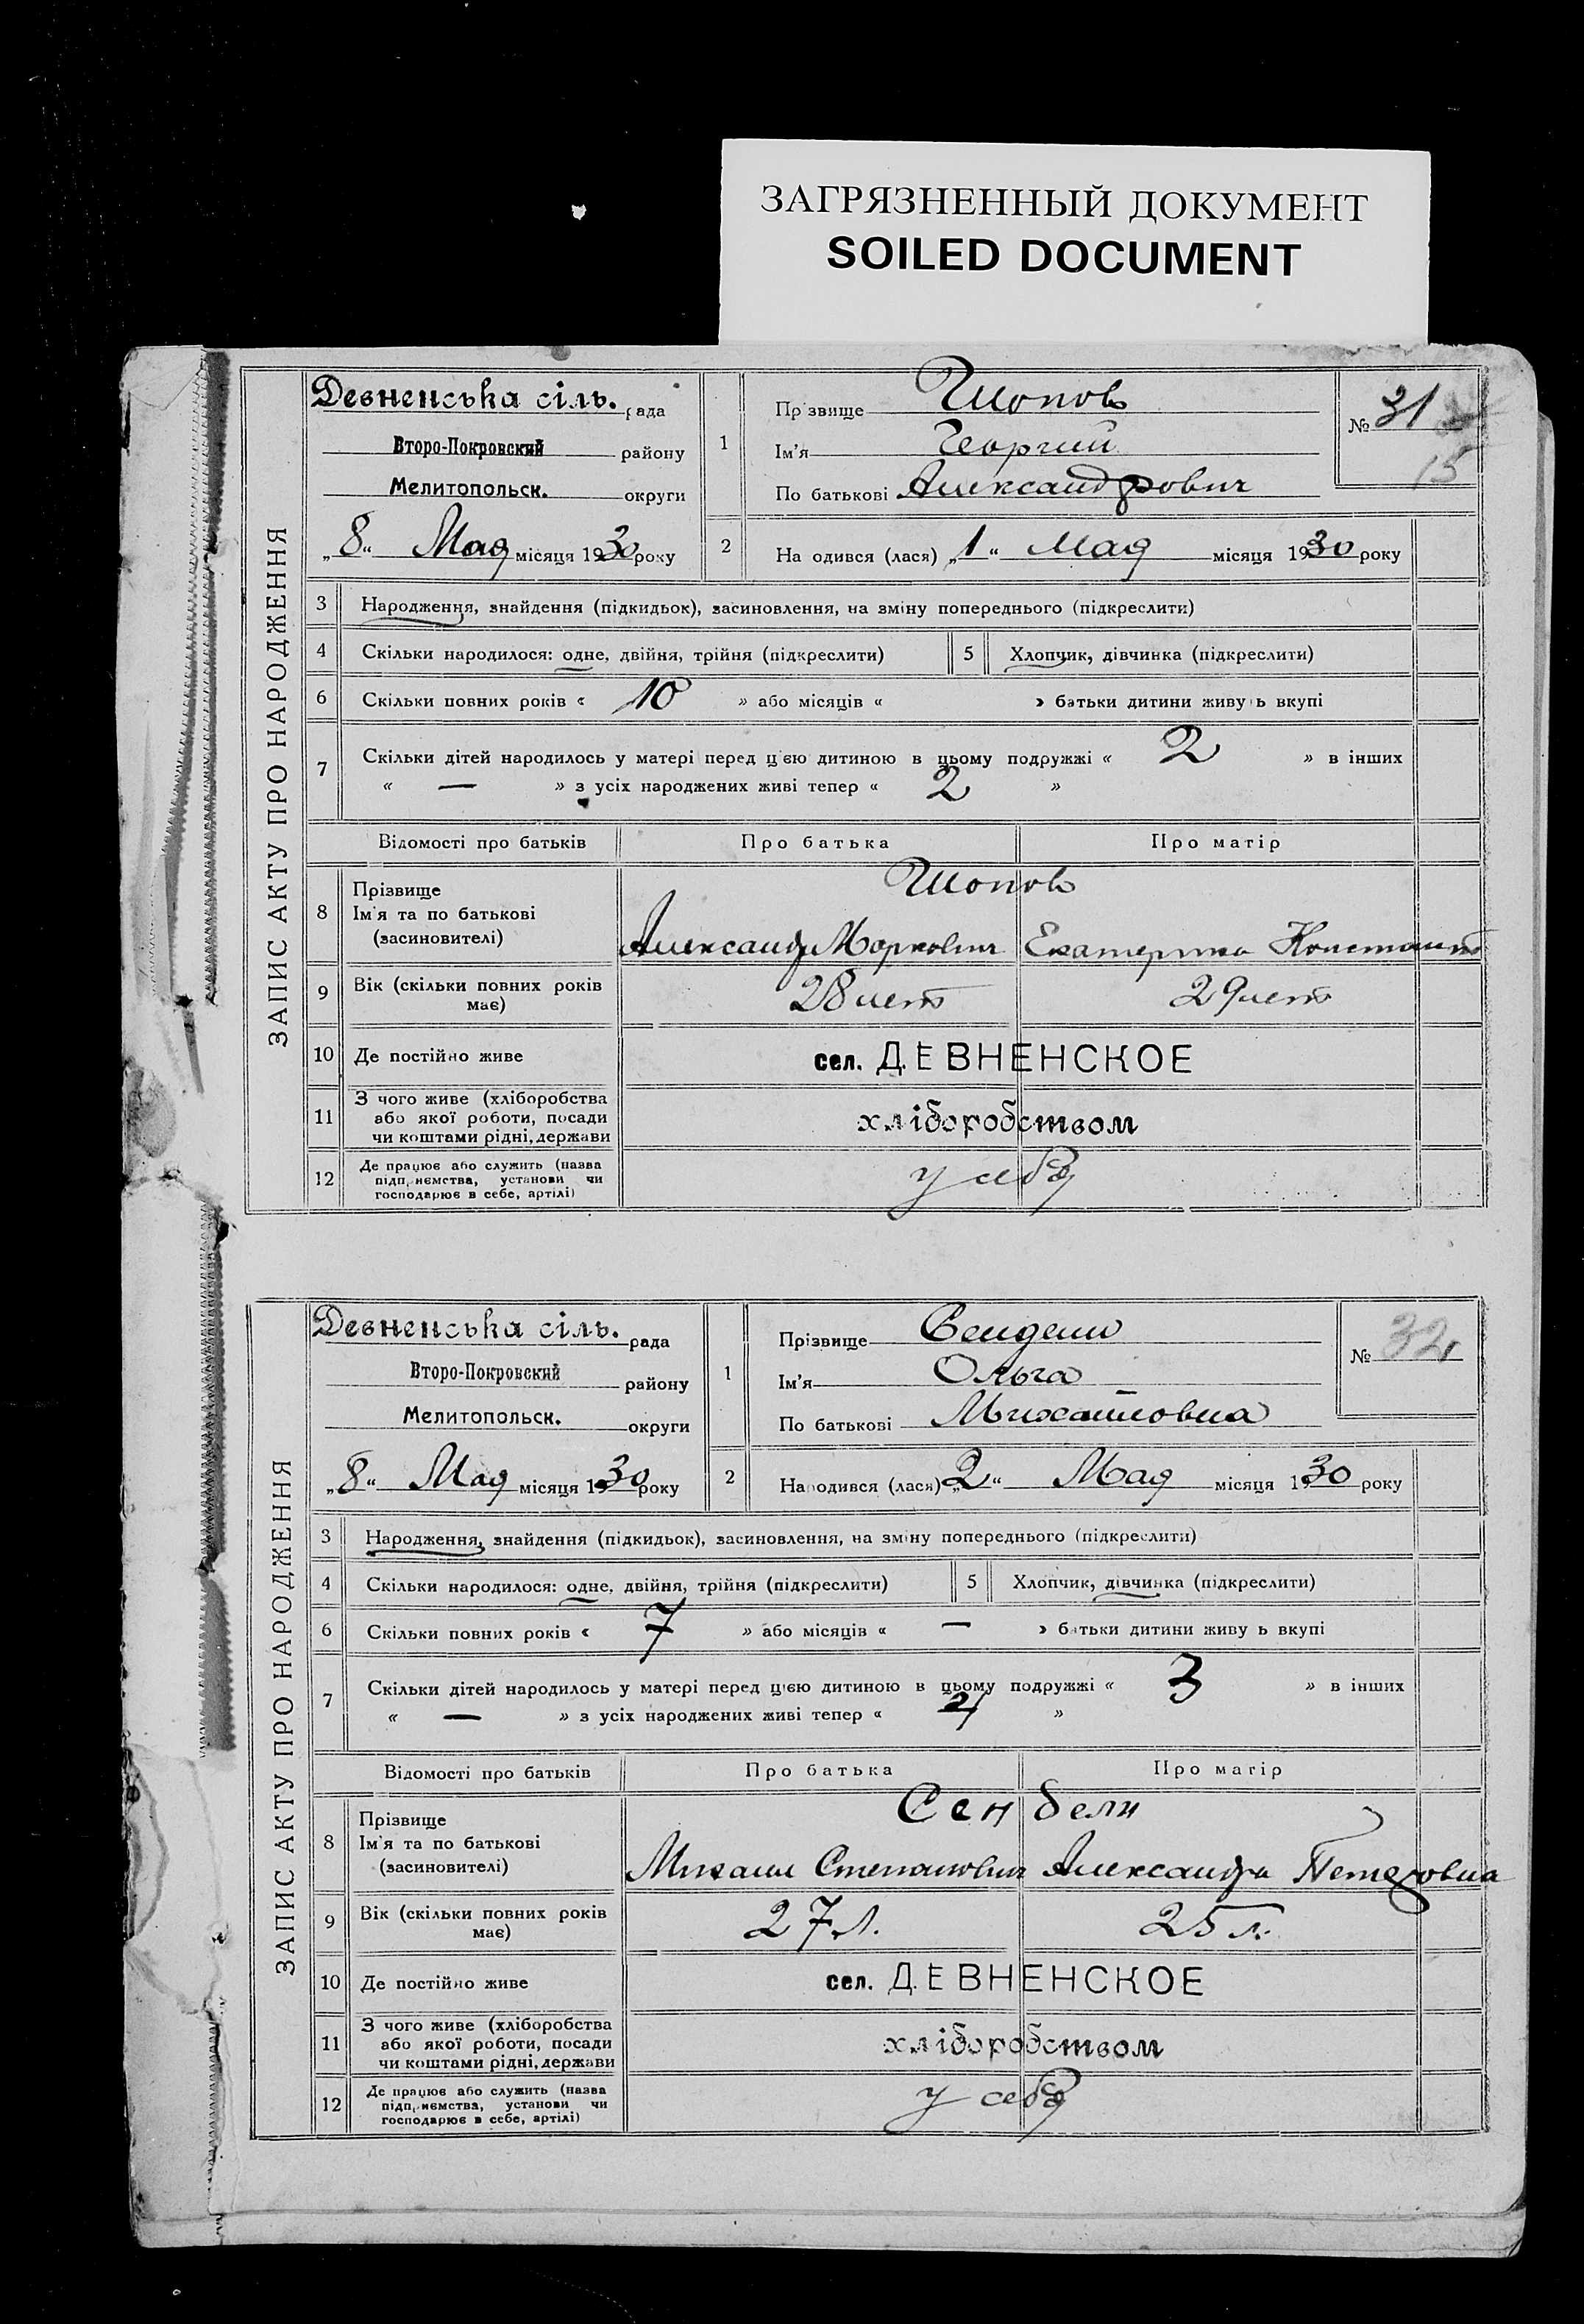 ЗАГРЯЗНЕННЫЙ ДОКУМЕНТ
SOILED DOCUMENT
ЗАПИС АКТУ ПРО НАРОДЖЕННЯ
Девненська сіль. рада
Второ-Покровский району
Мелитопольск. округи
„8“ Мая місяця 1930 року
1
Прізвище
Ім'я Георгий
По батькові Александрович
№ 31
15
2 Народився (лася) „1“ Мая місяця 1930 року
3 Народження, знайдення (підкидьок), засиновлення, на зміну попереднього (підкреслити)
4 Скільки народилося: одне, двійня, трійня (підкреслити) 5 Хлопчик, дівчинка (підкреслити)
6 Скільки повних років « 10 » або місяців « » батьки дитини живуть вкупі
7 Скільки дітей народилось у матері перед цією дитиною в цьому подружжі « 2 » в інших
« — » з усіх народжених живі тепер « 2 »
Відомості про батьків Про батька Про матір
8 Прізвище
Ім'я та по батькові
(засиновителі) Александр Маркович Екатерина Констант
9 Вік (скільки повних років має) 28 лет 29 лет
10 Де постійно живе сел. ДЕВНЕНСКОЕ
11 З чого живе (хліборобства
або якої роботи, посади
чи коштами рідні, держави хліборобством
12 Де працює або служить (назва
підприємства, установи чи
господарює в себе, артілі) у себя
ЗАПИС АКТУ ПРО НАРОДЖЕННЯ
Девненська сіль. рада
Второ-Покровский району
Мелитопольск. округи
„8“ Мая місяця 1930 року
1
Прізвище
Ім'я Ольга
По батькові Михайловна
№ 32
2 Народився (лася) „2“ Мая місяця 1930 року
3 Народження, знайдення (підкидьок), засиновлення, на зміну попереднього (підкреслити)
4 Скільки народилося: одне, двійня, трійня (підкреслити) 5 Хлопчик, дівчинка (підкреслити)
6 Скільки повних років « 7 » або місяців « — » батьки дитини живуть вкупі
7 Скільки дітей народилось у матері перед цією дитиною в цьому подружжі « 3 » в інших
« — » з усіх народжених живі тепер « »
Відомості про батьків Про батька Про матір
8 Прізвище Сен бели
Ім'я та по батькові
(засиновителі) Михаил Степанович Александра Петровна
9 Вік (скільки повних років має) 27 л. 25 л.
10 Де постійно живе сел. ДЕВНЕНСКОЕ
11 З чого живе (хліборобства
або якої роботи, посади
чи коштами рідні, держави хліборобством
12 Де працює або служить (назва
підприємства, установи чи
господарює в себе, артілі) у себя